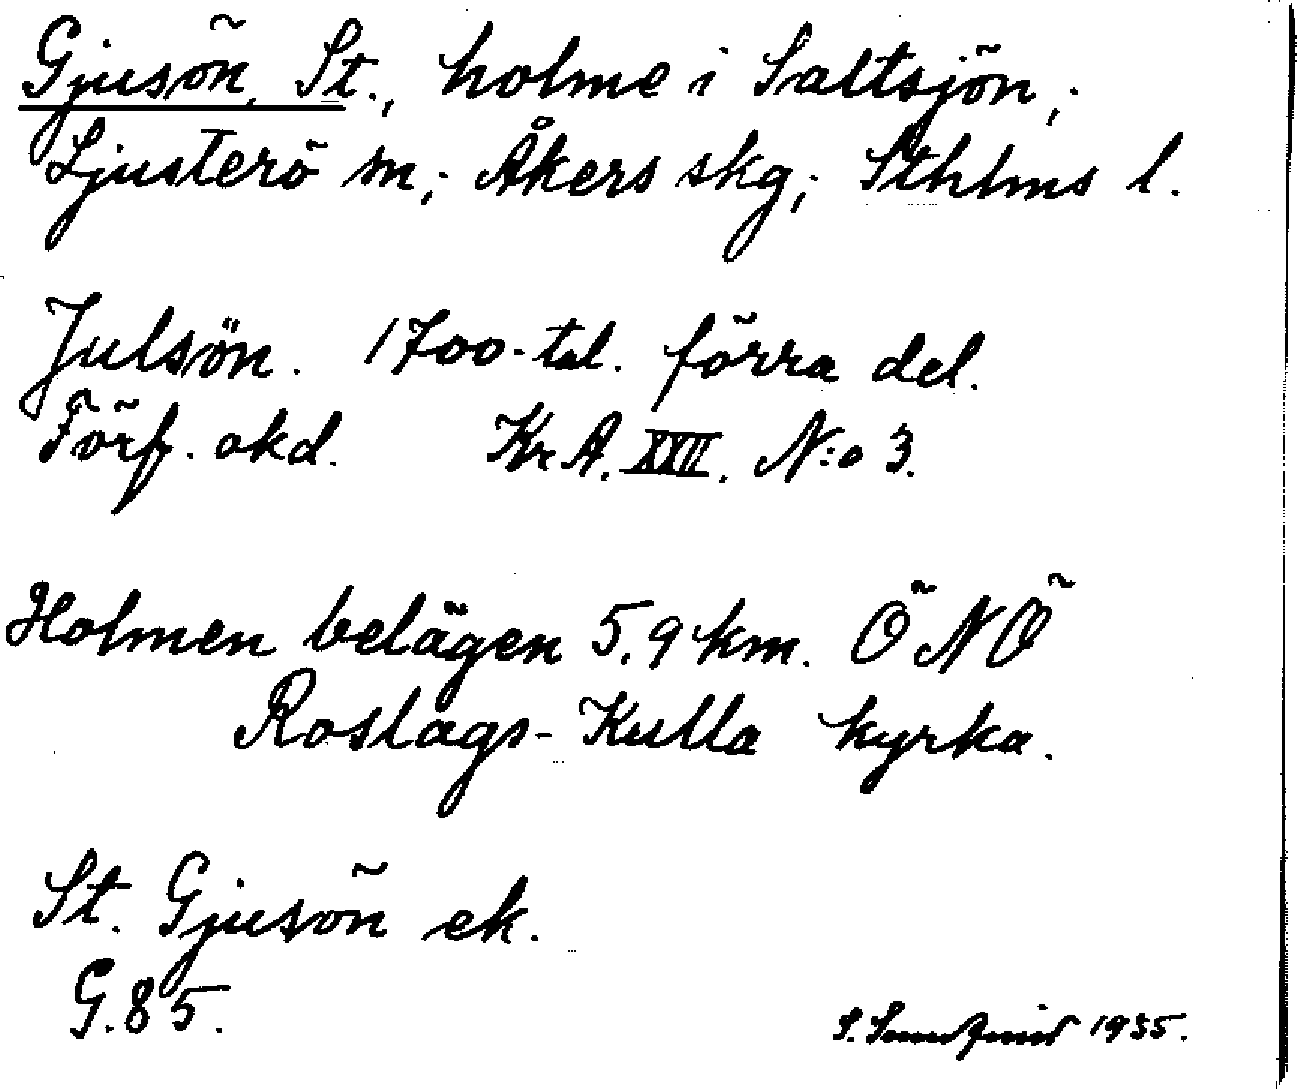 Gjusön, St., holme i Saltsjön,;
Ljusterö sn,; Åkers skg,; Sthlms l.
Julsön. 1700-tal. förra del.
Förf. okd. Kr A. XXII. N:o 3.
Holmen belägen 5,9 km. ÖNÖ
Roslags-Kulla kyrka.
St. Gjusön ek.
G.85.
S. 1935.